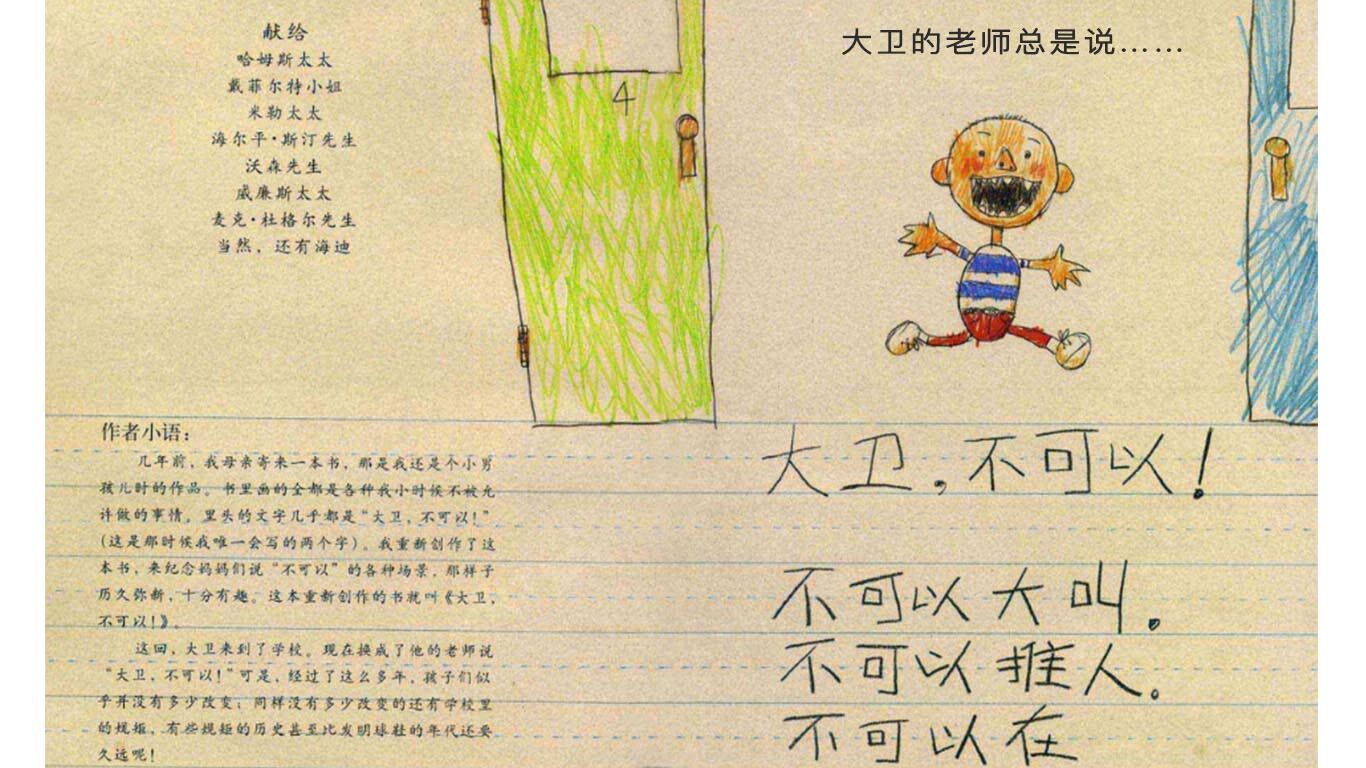 献给
哈姆斯太太
戴菲尔特小姐
米勒太太
海尔平·斯汀先生
沃森先生
威廉斯太太
麦克·杜格尔先生
当然，还有海迪
4
作者小语：
几年前，我母亲寄来一本书，那是我还是个小男
孩儿时的作品。书里画的全都是各种我小时候不被允
许做的事情，里头的文字几乎都是“大卫，不可以！”
（这是那时候我唯一会写的两个字）。我重新创作了这
本书，来纪念妈妈们说“不可以”的各种场景，那样子
历久弥新，十分有趣。这本重新创作的书就叫《大卫，
不可以！》。
这回，大卫来到了学校。现在换成了他的老师说
“大卫，不可以！”可是，经过了这么多年，孩子们似
乎并没有多少改变；同样没有多少改变的还有学校里
的规矩，有些规矩的历史甚至比发明球鞋的年代还要
久远呢！
大卫的老师总是说……
大卫，不可以！
不可以大叫。
不可以推人。
不可以在